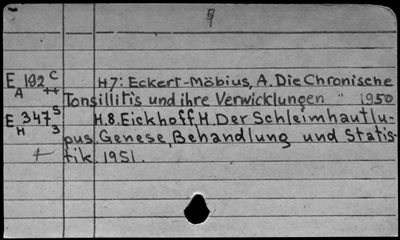 9
E 192 C H7: Eckert-Möbius, A. Die Chronische
A ++ Tonsillitis und ihre Verwicklungen " 1950
E 347 S H.8. Eickhoff, H. Der Schleimhautlu-
H 3 pus, Genese, Behandlung und Statis-
+ tik. 1951.